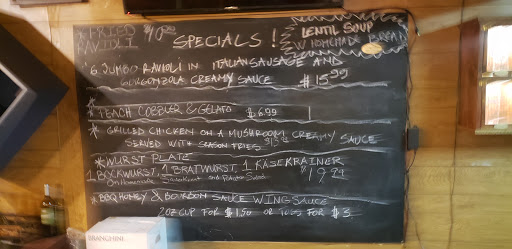 * FRIED RAVIOLI $10.00
SPECIALS!
LENTIL SOUP
W HOMEMADE BREAD
6 JUMBO RAVIOLI IN ITALIAN SAUSAGE AND
GORGONZOLA CREAMY SAUCE $15.99
*
PEACH COBBLER & GELATO $6.99
* GRILLED CHICKEN ON A MUSHROOM CREAMY SAUCE
SERVED WITH SEASON FRIES
* WURST PLATE
1 BOCKWURST, 1 BRATWURST, 1 KASEKRAINER
On Homemade Sauerkraut and Potato Salad $19.24
* BBQ HONEY & BOURBON SAUCE WING SAUCE
2OZ CUP FOR $1.50 OR TOSS FOR $3
BIANCHINI